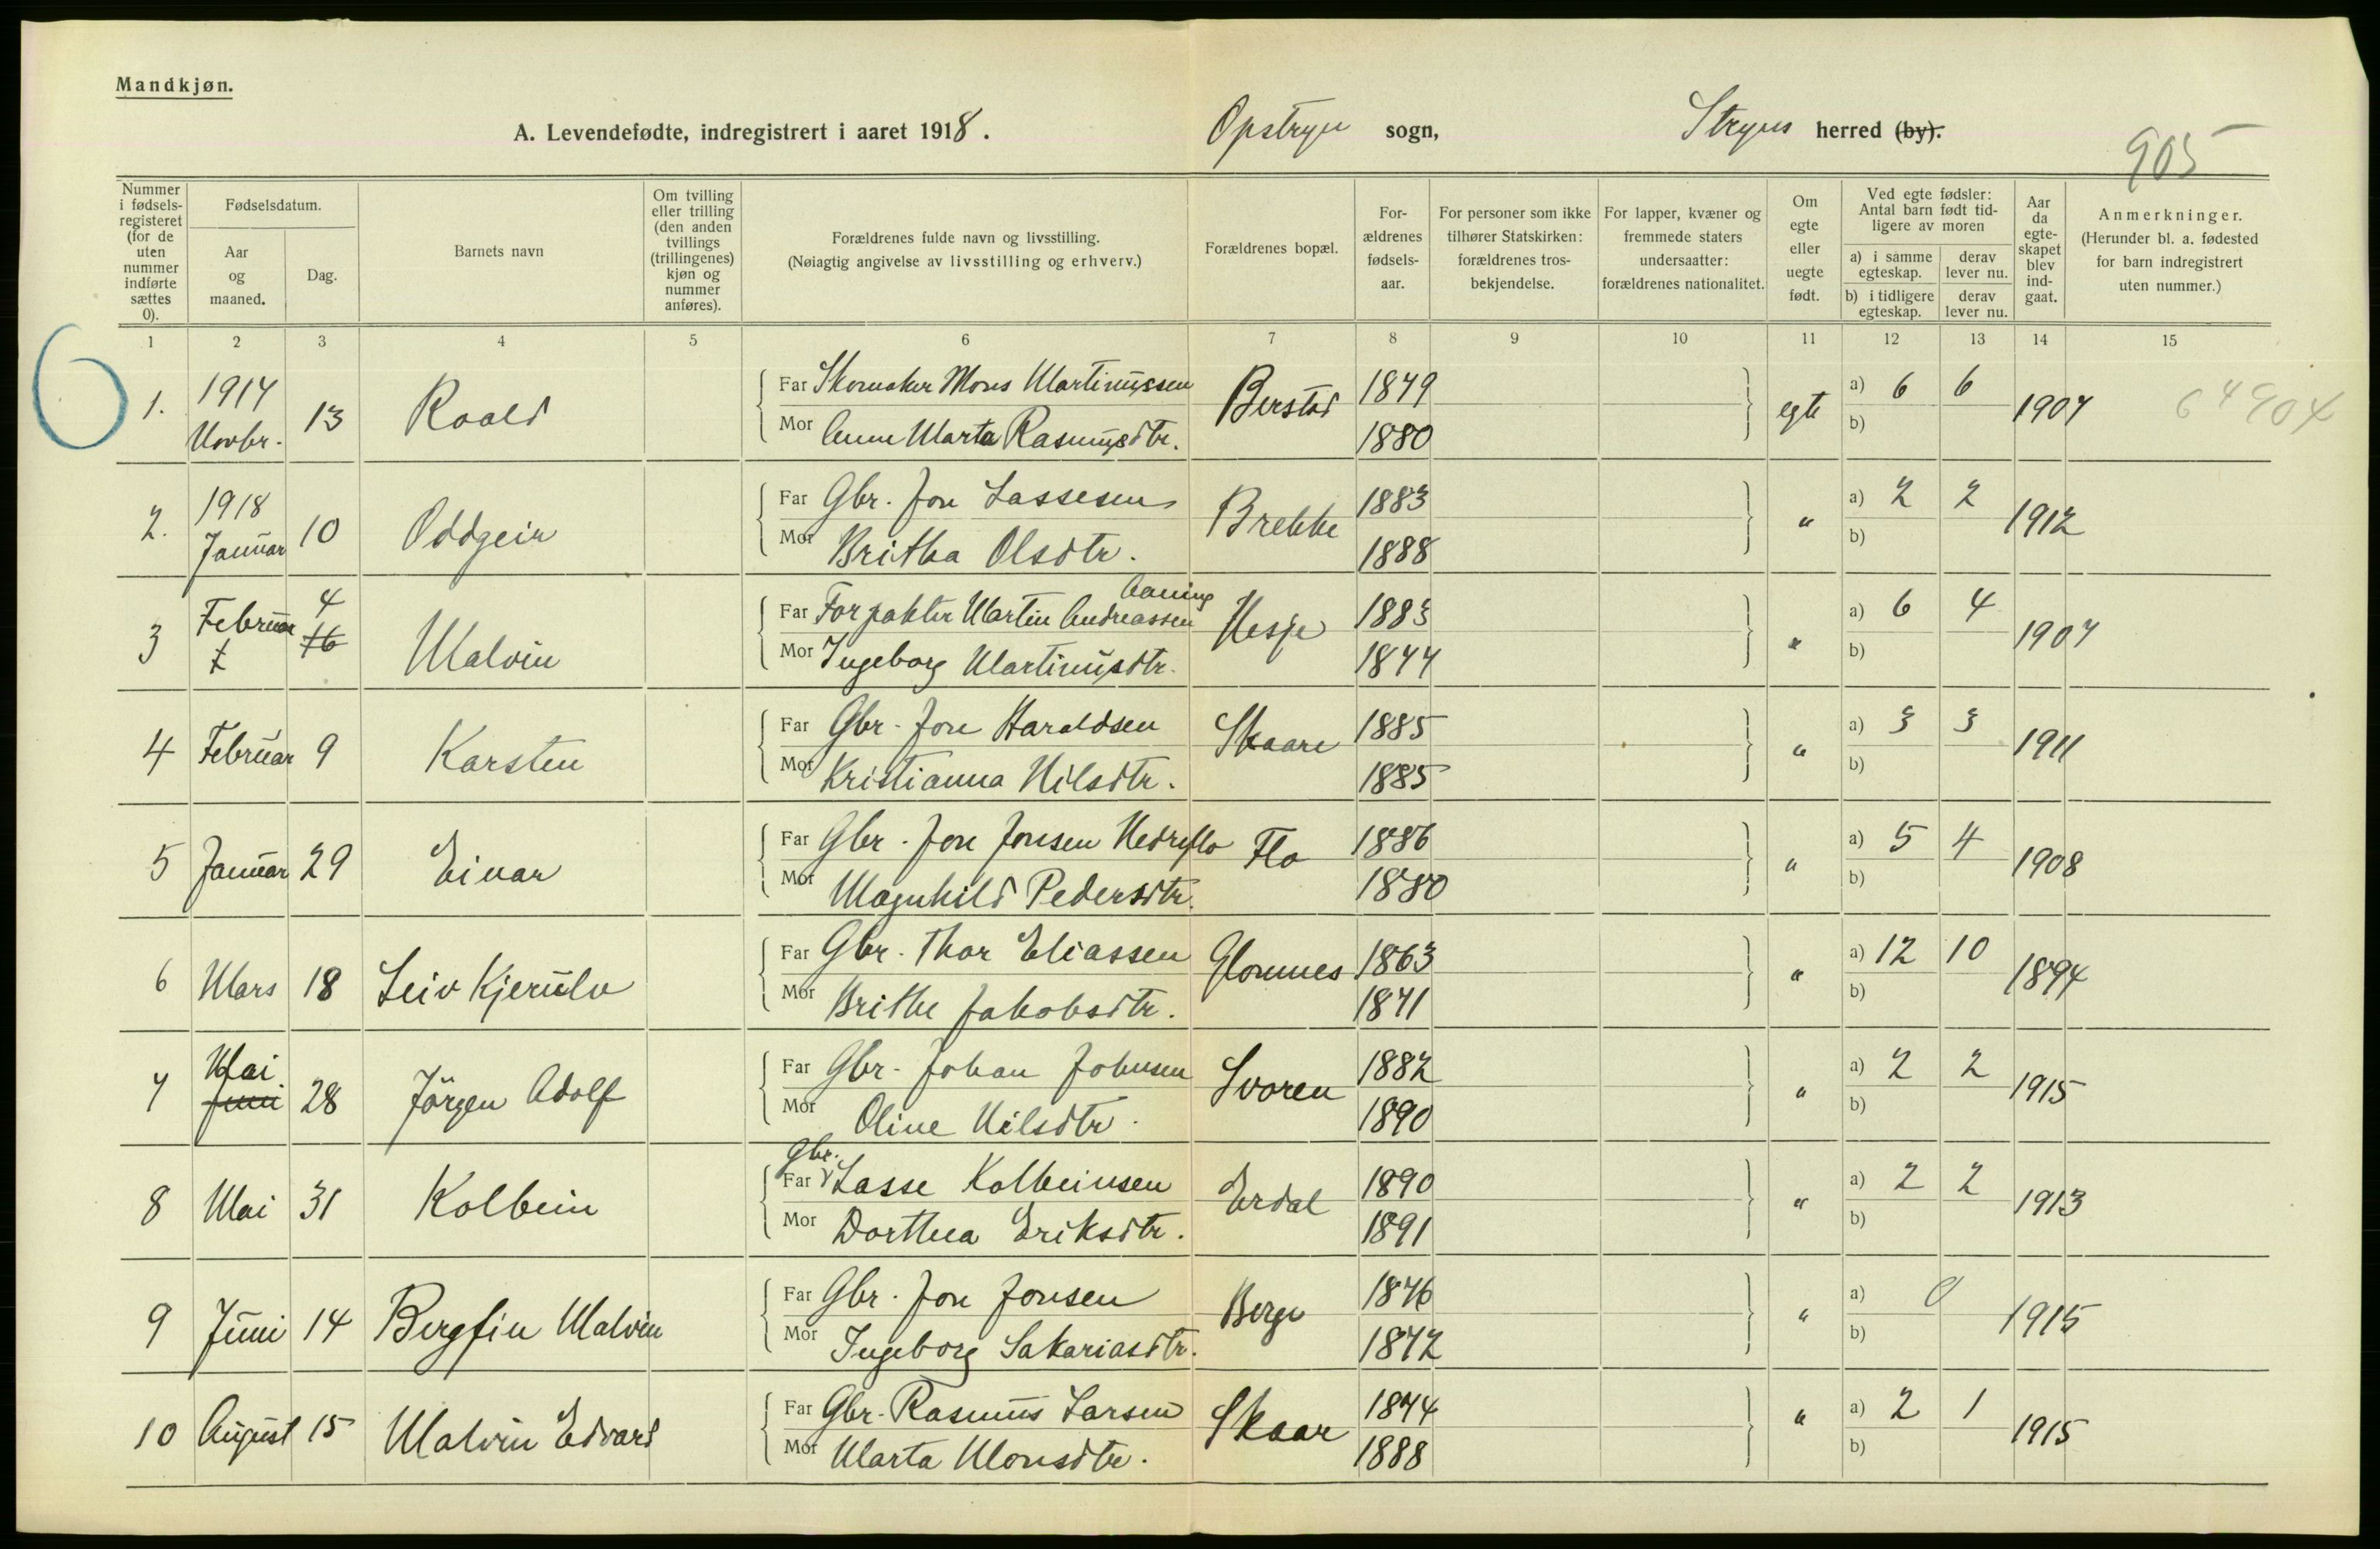 Mandkjøn.
A. Levendefødte, indregistrert i aaret 1918. Opstryn sogn, Stryns herred (by).
905
Nummer i fødselsregisteret (for de uten nummer indførte sættes 0).
Fødselsdatum.
Aar og maaned.
Dag.
Barnets navn
Om tvilling eller trilling (den anden tvillings (trillingenes) kjøn og nummer anføres).
Forældrenes fulde navn og livsstilling.
(Nøiagtig angivelse av livsstilling og erhverv.)
Forældrenes bopæl.
Forældrenes fødselsaar.
For personer som ikke tilhører Statskirken: forældrenes trosbekjendelse.
For lapper, kvæner og fremmede staters undersaatter: forældrenes nationalitet.
Om egte eller uegte født.
Ved egte fødsler: Antal barn født tidligere av moren
a) i samme egteskap. derav lever nu.
b) i tidligere egteskap. derav lever nu.
Aar da egteskapet blev indgaat.
Anmerkninger.
(Herunder bl. a. fødested for barn indregistrert uten nummer.)
1 2 3 4 5 6 7 8 9 10 11 12 13 14 15
6
1. 1917 Novbr. 13 Roald
Far Skomaker Mons Martinussen Berstad 1879 egte a) 6 6 1907
Mor Anne Marta Rasmusdtr. 1880 b)
2. 1918 Januar 10 Oddgeir
Far Gbr. Jon Lassesen Brekke 1883 " a) 2 2 1912
Mor Britha Olsdtr. 1888 b)
3 Februar 4 16 Malvin
Far Forpakter Martin Andreassen Aaning Hesje 1883 " a) 6 4 1907
Mor Ingeborg Martinusdtr. 1877 b)
4 Februar 9 Karsten
Far Gbr. Jon Haraldsen Skaare 1885 " a) 3 3 1911
Mor Kristianna Nilsdtr. 1885 b)
5 Januar 29 Einar
Far Gbr. Jon Jonsen Nedreflo Flo 1886 " a) 5 4 1908
Mor Magnhild Pedersdtr. 1880 b)
6 Mars 18 Leiv Kjerulv
Far Gbr. Thor Eliassen Glomnes 1863 " a) 12 10 1894
Mor Brithe Jakobsdtr. 1871 b)
7 Mai Juni 28 Jörgen Adolf
Far Gbr. Johan Johnsen Svoren 1882 " a) 2 2 1915
Mor Oline Nilsdtr. 1890 b)
8 Mai 31 Kolbein
Far Gbr. Lasse Kolbeinsen Erdal 1890 " a) 2 2 1913
Mor Dorthea Eriksdtr. 1891 b)
9 Juni 14 Bergfin Malvin
Far Gbr. Jon Jonsen Berge 1876 " a) 0 1915
Mor Ingeborg Sakariasdtr. 1872 b)
10 August 15 Malvin Edvard
Far Gbr. Rasmus Larsen Skaar 1874 " a) 2 1 1915
Mor Marta Monsdtr. 1888 b)